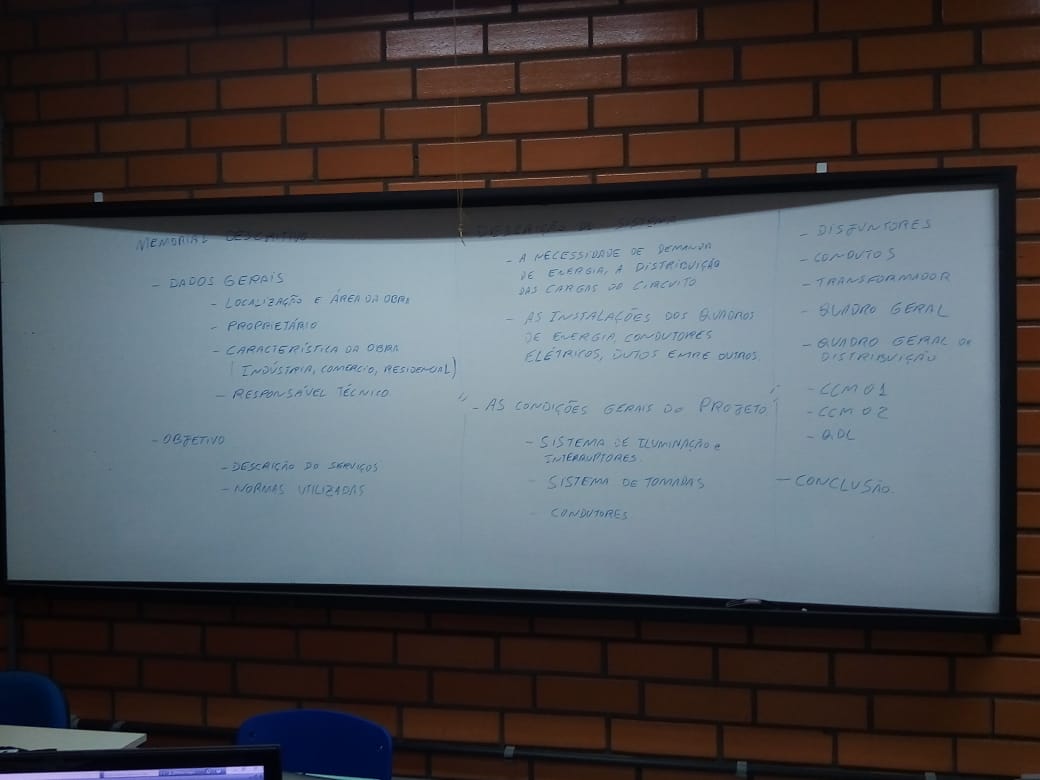 MEMORIAL DESCRITIVO
- DADOS GERAIS
- LOCALIZAÇÃO E ÁREA DA OBRA
- PROPRIETÁRIO
- CARACTERÍSTICA DA OBRA
(INDÚSTRIA, COMERCIO, RESIDENCIAL)
- RESPONSÁVEL TÉCNICO
- OBJETIVO
- DESCRIÇÃO DO SERVIÇOS
- NORMAS UTILIZADAS
DESCRIÇÃO DE SISTEMA
- A NECESSIDADE DE DEMANDA
DE ENERGIA, A DISTRIBUIÇÃO
DAS CARGAS DO CIRCUITO
- AS INSTALAÇÕES DOS QUADROS
DE ENERGIA, CONDUTORES
ELÉTRICOS, DUTOS ENTRE OUTROS
" - AS CONDIÇÕES GERAIS DO PROJETO "
- SISTEMA DE ILUMINAÇÃO e
INTERRUPTORES
- SISTEMA DE TOMADAS
- CONDUTORES
- DISJUNTORES
- CONDUTOS
- TRANSFORMADOR
- QUADRO GERAL
- QUADRO GERAL DE
DISTRIBUIÇÃO
- CCM 01
- CCM 02
- QDL
- CONCLUSÃO.